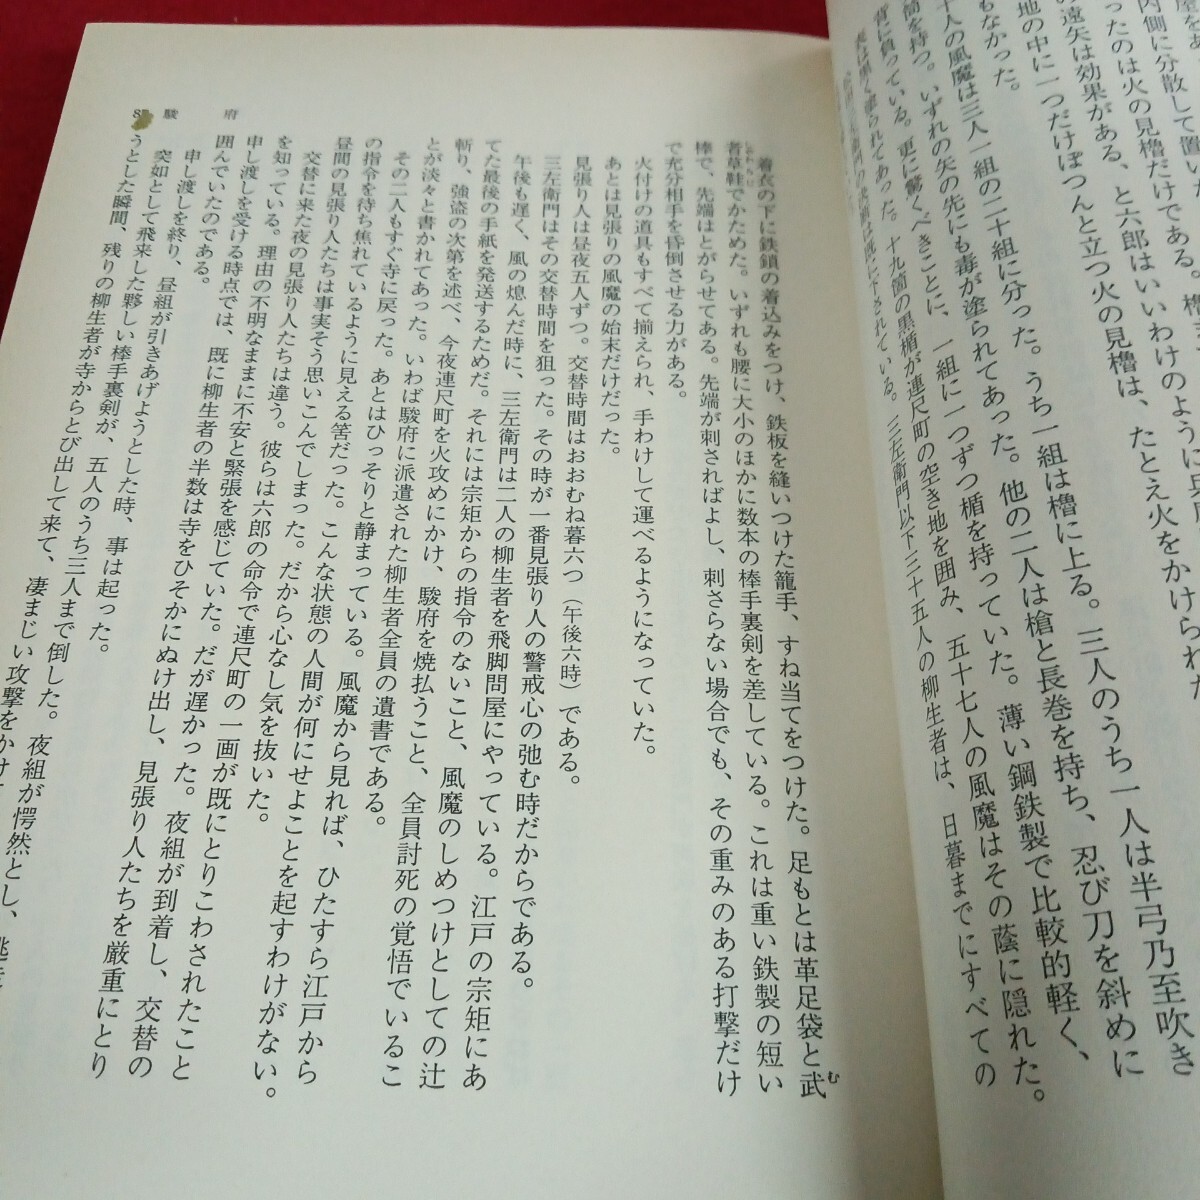 屋をあ
内側に分散して置いた
ったのは火の見櫓だけである。櫓上
の遠矢は効果がある、と六郎はいいわけのように兵
地の中に一つだけぽつんと立つ火の見櫓は、たとえ火をかけられた
もなかった。
十人の風魔は三人一組の二十組に分った。うち一組は櫓に上る。三人のうち一人は半弓乃至吹き
筒を持つ。いずれの矢の先にも毒が塗られてあった。他の二人は槍と長巻を持ち、忍び刀を斜めに
背に負っている。更に驚くべきことに、一組に一つずつ楯を持っていた。薄い鋼鉄製で比較的軽く、
表は黒く塗られてあった。十九箇の黒楯が連尺町の空き地を囲み、五十七人の風魔はその蔭に隠れた。
既に下されている。三左衛門以下三十五人の柳生者は、日暮までにすべての
駿府
着衣の下に鉄鎖の着込みをつけ、鉄板を縫いつけた籠手、すね当てをつけた。足もとは革足袋と武
者草鞋でかためた。いずれも腰に大小のほかに数本の棒手裏剣を差している。これは重い鉄製の短い
棒で、先端はとがらせてある。先端が刺さればよし、刺さらない場合でも、その重みのある打撃だけ
で充分相手を昏倒させる力がある。
火付けの道具もすべて揃えられ、手わけして運べるようになっていた。
あとは見張りの風魔の始末だけだった。
見張り人は昼夜五人ずつ。交替時間はおおむね暮六つ（午後六時）である。
三左衛門はその交替時間を狙った。その時が一番見張り人の警戒心の弛む時だからである。
午後も遅く、風の熄んだ時に、三左衛門は二人の柳生者を飛脚問屋にやっている。江戸の宗矩にあ
てた最後の手紙を発送するためだ。それには宗矩からの指令のないこと、風魔のしめつけとしての辻
斬り、強盗の次第を述べ、今夜連尺町を火攻めにかけ、駿府を焼払うこと、全員討死の覚悟でいるこ
とが淡々と書かれてあった。いわば駿府に派遣された柳生者全員の遺書である。
その二人もすぐ寺に戻った。あとはひっそりと静まっている。風魔から見れば、ひたすら江戸から
の指令を待ち焦れているように見える筈だった。こんな状態の人間が何にせよことを起すわけがない。
昼間の見張り人たちは事実そう思いこんでしまった。だから心なし気を抜いた。
交替に来た夜の見張り人たちは違う。彼らは六郎の命令で連尺町の一画が既にとりこわされたこと
を知っている。理由の不明なままに不安と緊張を感じていた。だが遅かった。夜組が到着し、交替の
申し渡しを受ける時点では、既に柳生者の半数は寺をひそかにぬけ出し、見張り人たちを厳重にとり
囲んでいたのである。
申し渡しを終り、昼組が引きあげようとした時、事は起った。
突如として飛来した夥しい棒手裏剣が、五人のうち三人まで倒した。夜組が愕然とし、
うとした瞬間、残りの柳生者が寺からとび出して来て、凄まじい攻撃をかけ